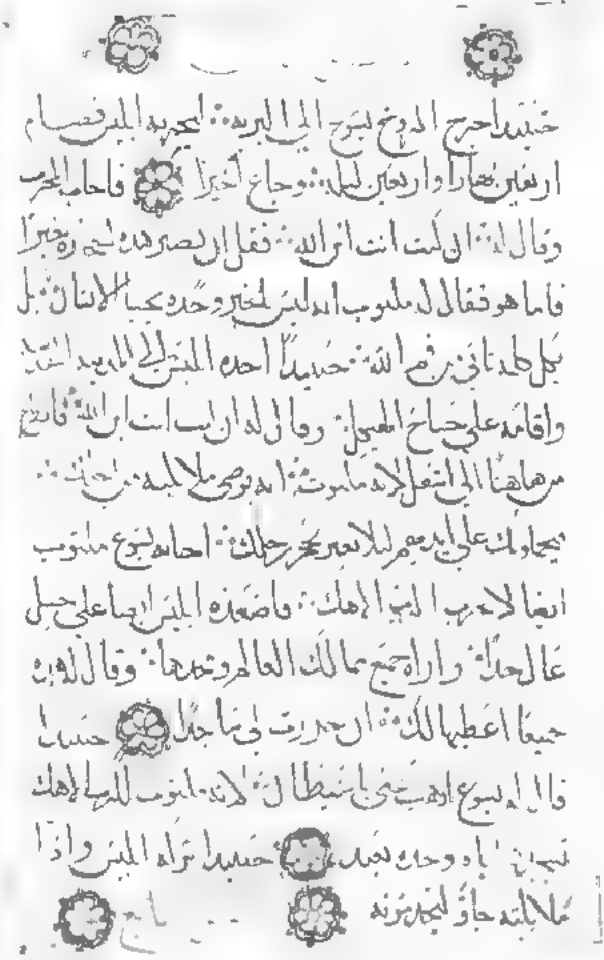 حينيد اخرج الروح ليسوع الي البريه ليجربه ابليس فصام
اربعين نهارا واربعين ليله وجاع اخيرا فاجابه المجرب
وقال له ان كنت انت ابن الله فقل ان تصير هذه الحجاره خبزا
فاما هو فقال له مكتوب انه ليس بالخبز وحده يحيا الانسان بل
بكل كلمه تاتي من فم الله حينيدا اخده ابليس الي المدينه
واقامه علي جناح الهيكل وقال له ان كنت ابن الله
من هاهنا الي اسفل لانه مكتوب انه يوصي ملايكته من اجلك
يحملونك علي ايديهم ليلا تعثر بحجر رجلك اجابه ليسوع مكتوب
ايضا لا تجرب الرب الاهك فاصعده ابليس ايضا علي جبل
عال جدا واراه جميع ممالك العالم ومجدها وقال له
جميعا اعطيها لك ان خررت لي ساجدا حينيدا
قال له يسوع اذهب عني يا شيطان لانه مكتوب للرب الاهك
تسجد اياه وحده تعبد حينيدا تركه ابليس واذا
ملايكته جاو ليخدمونه